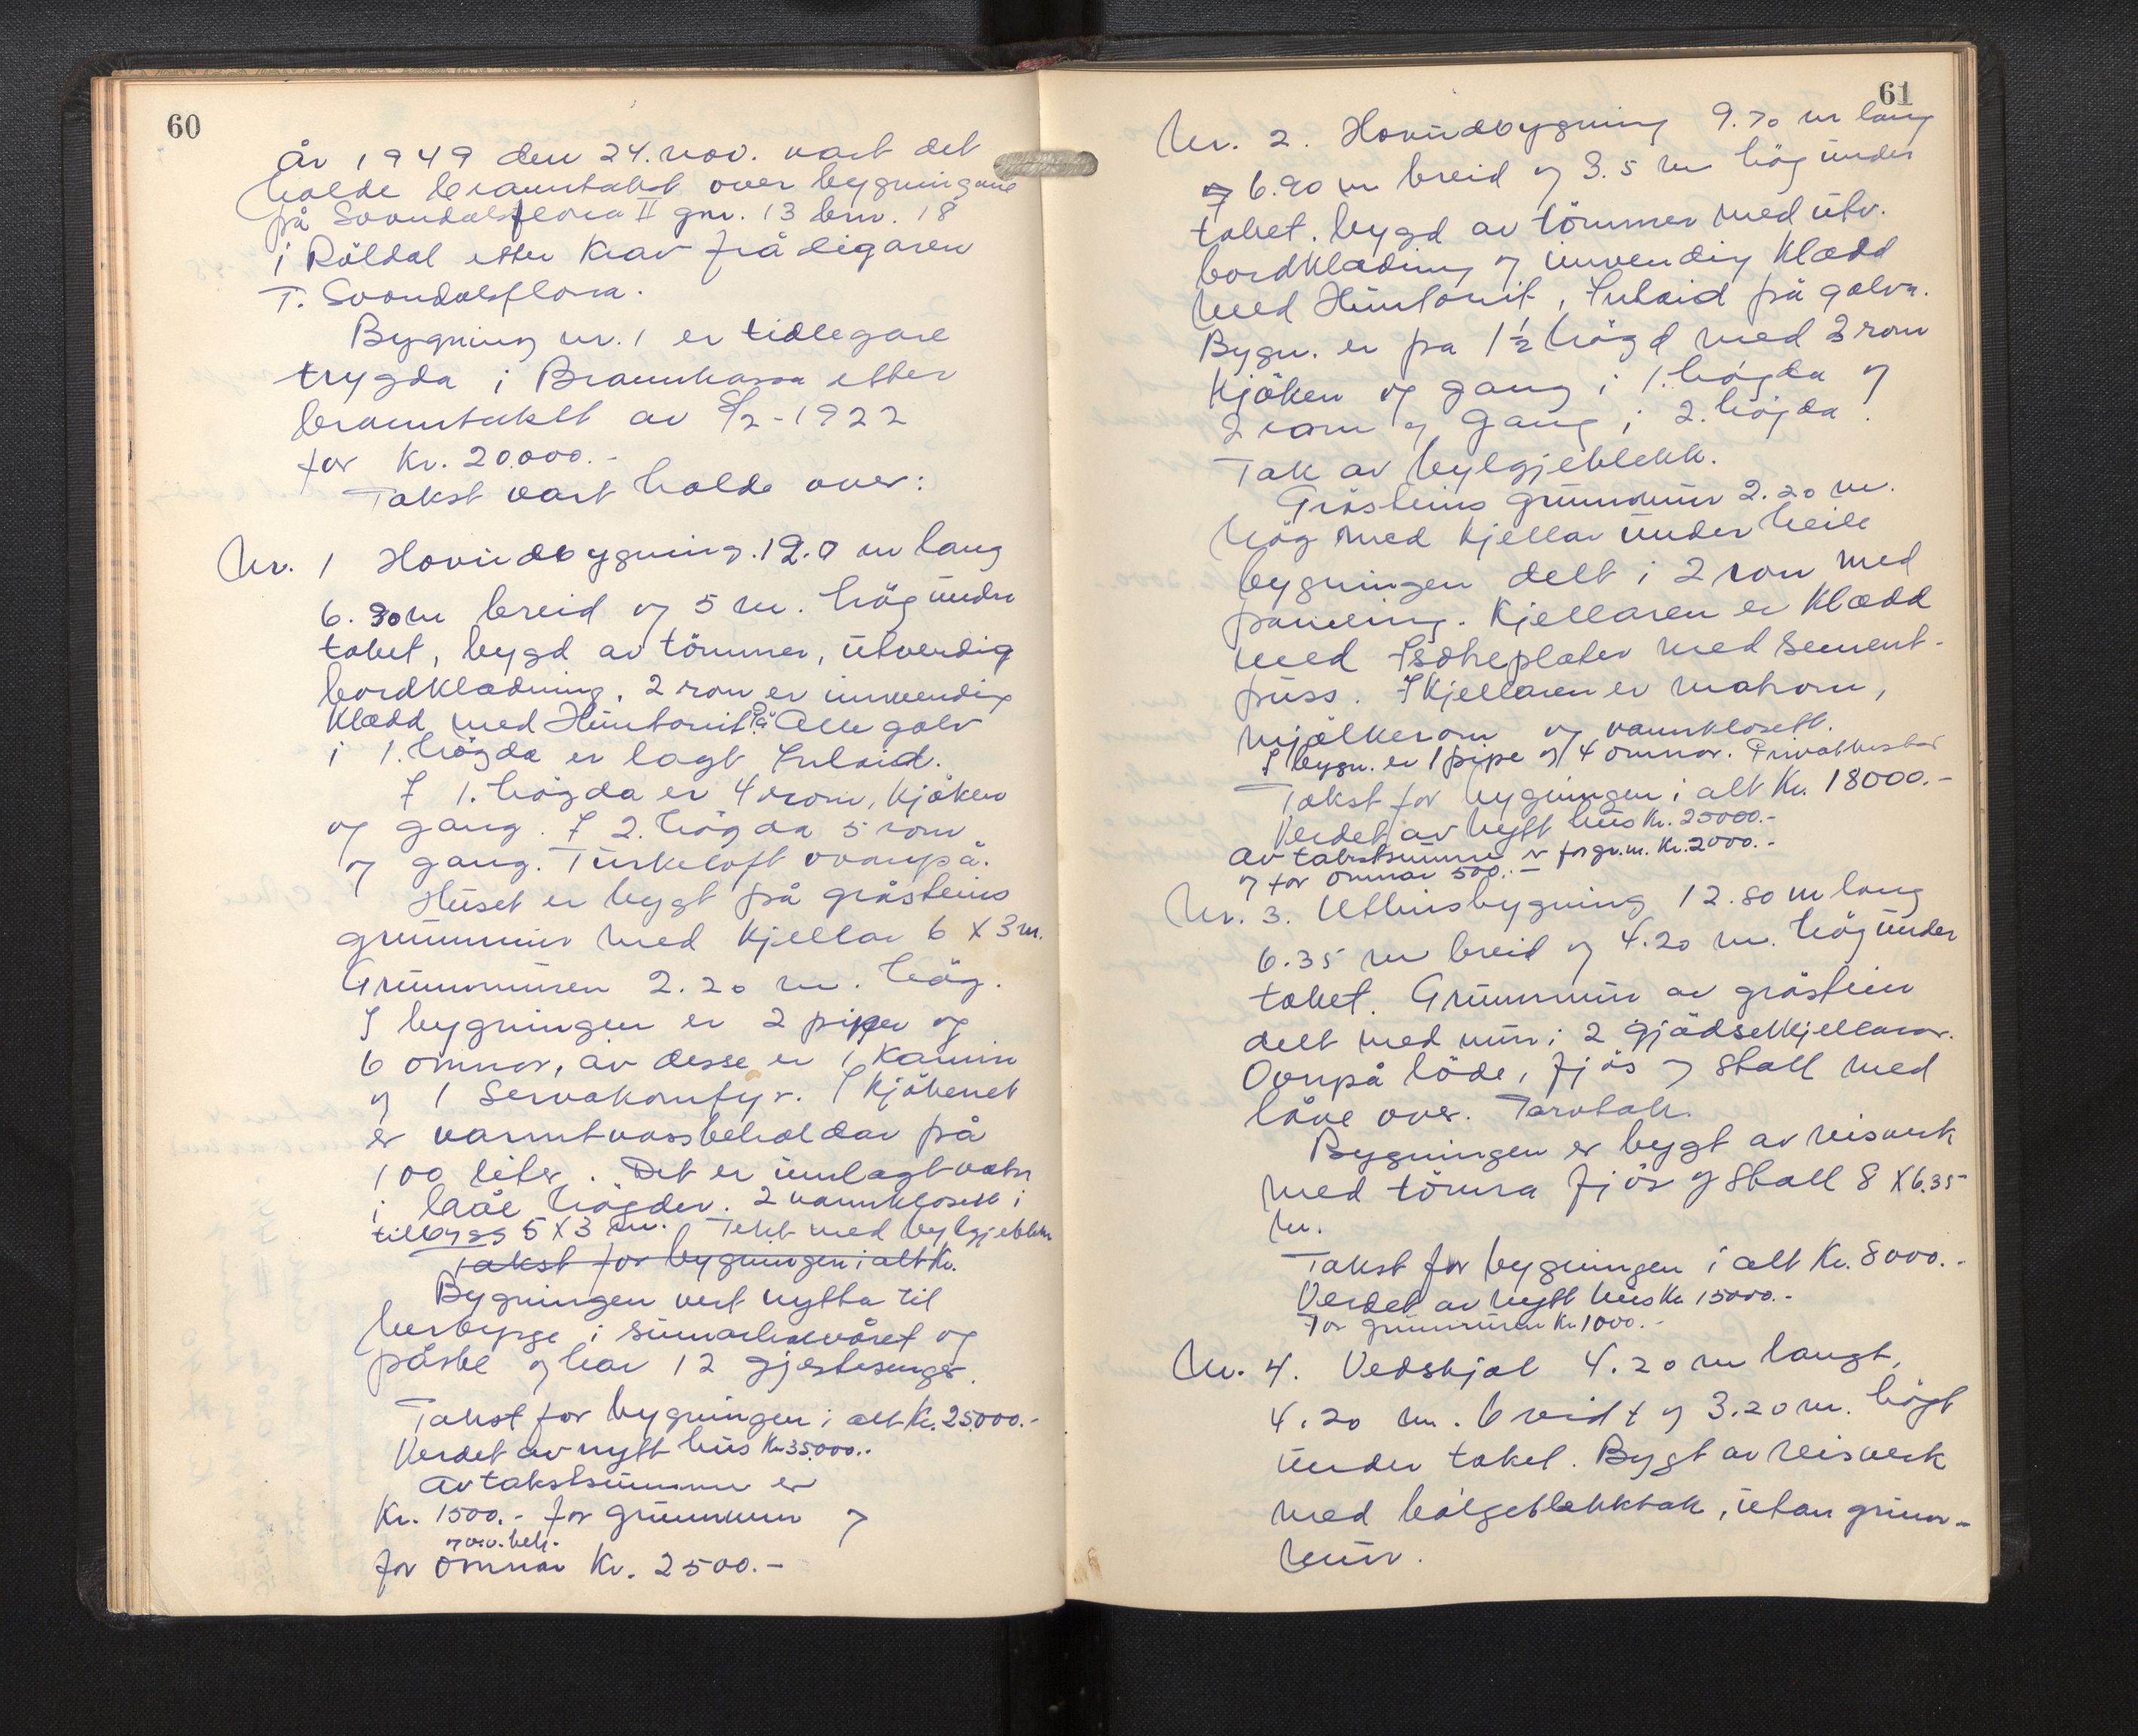 60
År 1949 den 24. nov. vart det
halde branntakst over bygningane
på Svandalsflona II gnr. 13 bnr. 18
i Röldal etter krav frå eigaren
T. Svandalsflona.
Bygning nr. 1 er tidlegare
trygda i Brannkassa etter
branntakst av 8/2-1922
for Kr. 20.000.-
Takst vart halde over:
Nr. 1 Hovudbygning. 12.0 m lang
6.30 m breid og 5 m. hög under
taket, bygd av tömmer, utvendig
bordklædning. 2 rom er innvendig
klædd med Huntonit. På alle golv
i 1. högda er lagt Inlaid.
I 1. högda er 4 rom, kjöken
og gang. I 2. högda 5 rom
og gang. Turkeloft ovanpå.
Huset er bygt på gråsteins
grunnmur med kjellar 6 X 3 m.
Grunnmuren 2.20 m. hög.
I bygningen er 2 piper og
6 omnar, av desse er 1 Kamin
og 1 Servakomfyr. I kjökenet
er varmtvassbehaldar på
100 liter. Det er innlagt vatn
i baae högder. 2 vannklosett i
tilbygg 5 X 3 m. Tekt med bylgjeblekk
Takst for bygningen i alt Kr.
Bygningen vert nytta til
herbyrge i sumarhalvåret og
påske og har 12 gjestesenger.
Takst for bygningen i alt Kr. 25.000.-
Verdet av nytt hus Kr. 35.000.-
Av takstsummen er
Kr. 1500.- for grunnmur og
og v.v. beh.
for omnar Kr. 2500.-
61
Nr. 2. Hovudbygning 9.70 m lang
og 6.90 m breid og 3.5 m hög under
taket. bygd av tömmer med utv.
bordklædning og innvendig klædd
med Huntonit, Inlaid på golva.
Bygn. er pa 1 ½ högd med 3 rom
kjöken og gang i 1. högda og
2 rom og gang i 2. högda.
Tak av bylgjeblekk.
Gråsteins grunnmur 2.20 m.
hög med kjellar under heile
bygningen delt i 2 rom med
paneling. Kjellaren er klædd
med plater med sement-
puss. I kjellaren er matrom,
mjölkerom og vannklosett.
I bygn. er 1 pipe og 4 omnar. Privatbustad
Takst for bygningen i alt Kr. 18000.-
Verdet av nytt hus Kr. 25000.-
Av takstsumme er for gr.m. Kr. 2000.-
og for omnar 500.-
Nr. 3. Uthusbygning 12.80 m lang
6.35 m breid og 4.20 m. hög under
taket. Grunnmur av gråstein
delt med mur i 2 gjödselkjellarar.
Ovnpå löde, fjös og stall med
låve over. Torvtak.
Bygningen er bygt av reisverk
med tömra fjös og stall 8 X 6.35
m.
Takst for bygningen i alt Kr. 8000.-
Verdet av nytt hus Kr. 15000.-
For grunnmuren Kr. 1000.-
Nr. 4. Vedskjal 4.20 m langt,
4.20 m. breidt og 3.20 m. högt
under taket. Bygt av reisverk
med bølgeblekktak, utan grunn-
mur.